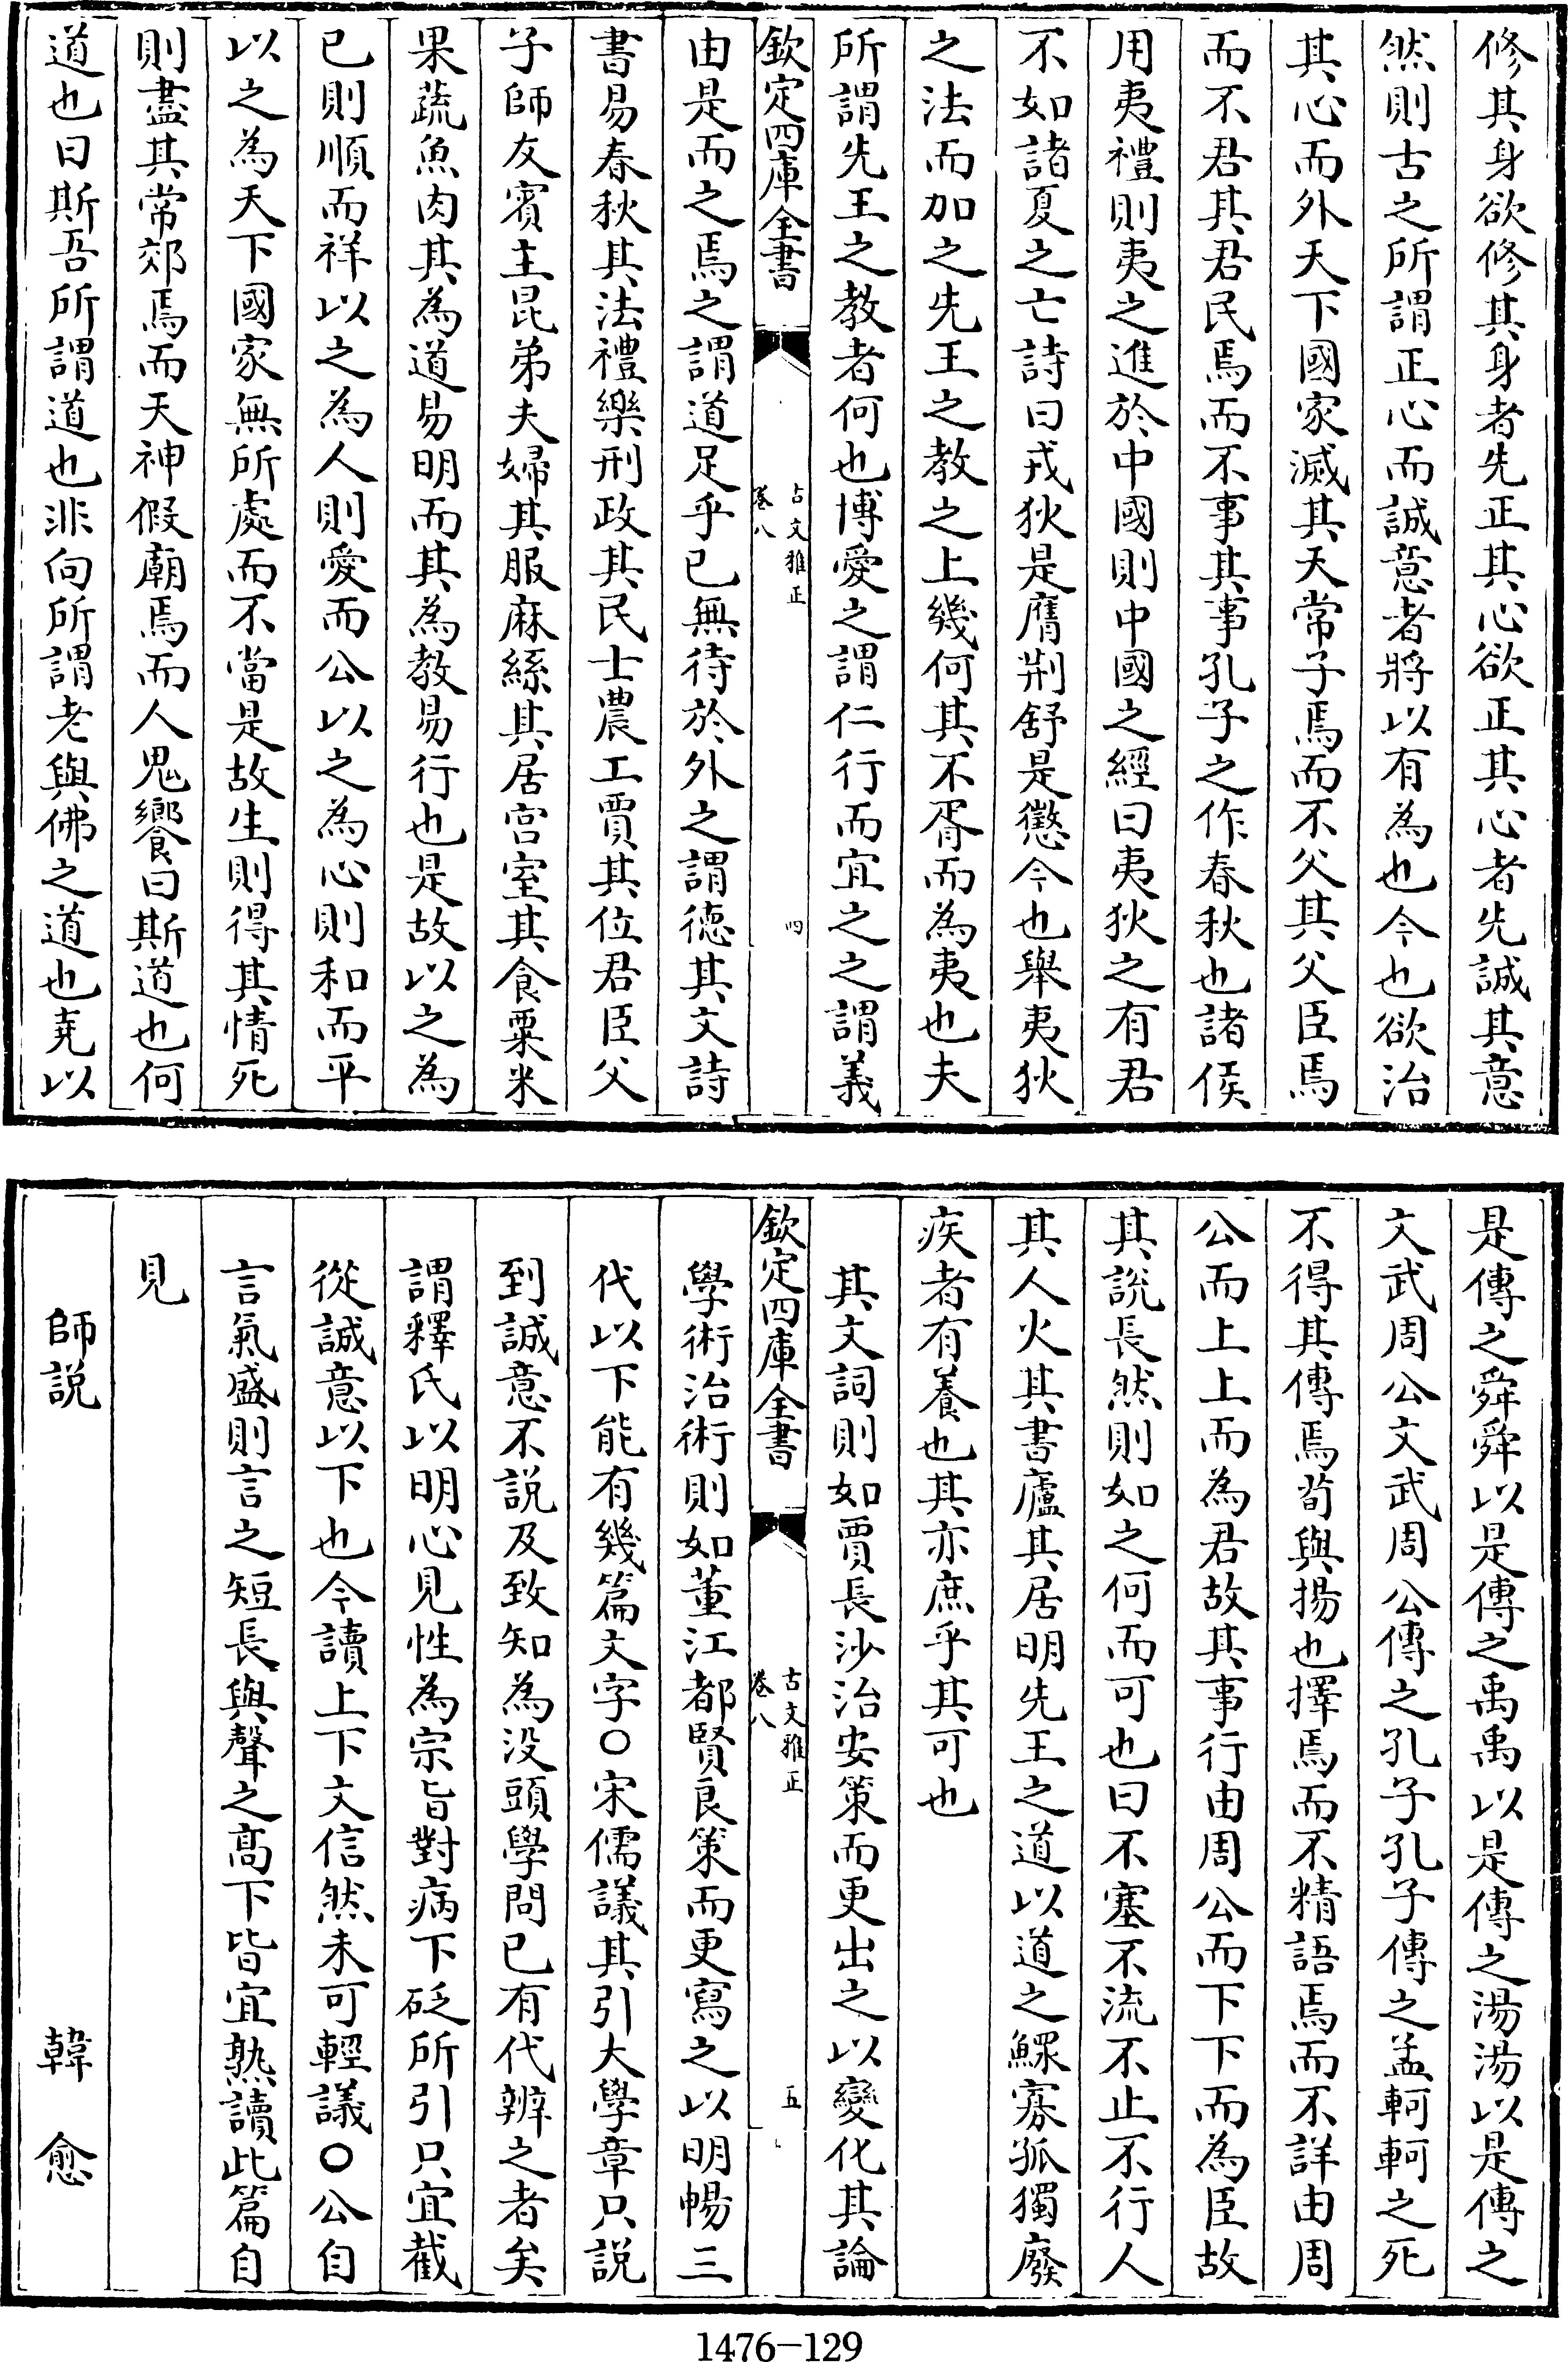 修其身欲修其身者先正其心欲正其心者先誠其意
然則古之所謂正心而誠意者將以有為也今也欲治
其心而外天下國家滅其天常子焉而不父其父臣焉
而不君其君民焉而不事其事孔子之作春秋也諸侯
用夷禮則夷之進於中國則中國之經曰夷狄之有君
不如諸夏之亡詩曰戎狄是膺荆舒是懲今也舉夷狄
之法而加之先王之教之上幾何其不胥而為夷也夫
所謂先王之教者何也博愛之謂仁行而宜之之謂義
欽定四庫全書
古文雅正
卷八
四
由是而之焉之謂道足乎已無待於外之謂德其文詩
書易春秋其法禮樂刑政其民士農工賈其位君臣父
子師友賓主昆弟夫婦其服麻絲其居宫室其食粟米
果蔬魚肉其為道易明而其為教易行也是故以之為
已則順而祥以之為人則愛而公以之為心則和而平
以之為天下國家無所處而不當是故生則得其情死
則盡其常郊焉而天神假廟焉而人鬼饗曰斯道也何
道也曰斯吾所謂道也非向所謂老與佛之道也堯以
是傳之舜舜以是傳之禹禹以是傳之湯湯以是傳之
文武周公文武周公傳之孔子孔子傳之孟軻軻之死
不得其傳焉荀與揚也擇焉而不精語焉而不詳由周
公而上上而為君故其事行由周公而下下而為臣故
其説長然則如之何而可也曰不塞不流不止不行人
其人火其書廬其居明先王之道以道之鰥寡孤獨廢
疾者有養也其亦庶乎其可也
其文詞則如賈長沙治安策而更出之以變化其論
欽定四庫全書
古文雅正
卷八
五
學術治術則如董江都賢良策而更寫之以明暢三
代以下能有幾篇文字○宋儒議其引大學章只説
到誠意不説及致知為没頭學問已有代辨之者矣
謂釋氏以明心見性為宗旨對病下砭所引只宜截
從誠意以下也今讀上下文信然未可輕議○公自
言氣盛則言之短長與聲之高下皆宜熟讀此篇自
見
師説 韓愈
1476-129